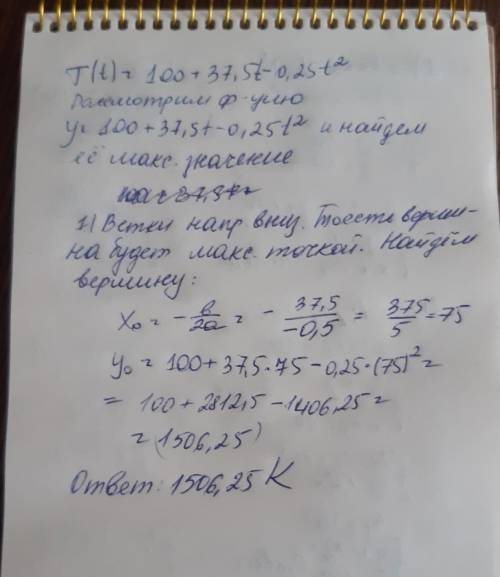 T(t) = 100 + 37,5t - 0,25t²
Рассмотрим ф-уцию
y = 100 + 37,5t - 0,25t² и найдем
её макс. значение
1) Ветки напр вниз. Тоесть верши-
на будет макс. точкой. Найдём
вершину:
x₀ = - b/2a = - 37,5/-0,5 = 375/5 = 75
y₀ = 100 + 37,5 · 75 - 0,25 · (75)² =
= 100 + 2812,5 - 1406,25 =
= (1506,25)
Ответ: 1506,25 K